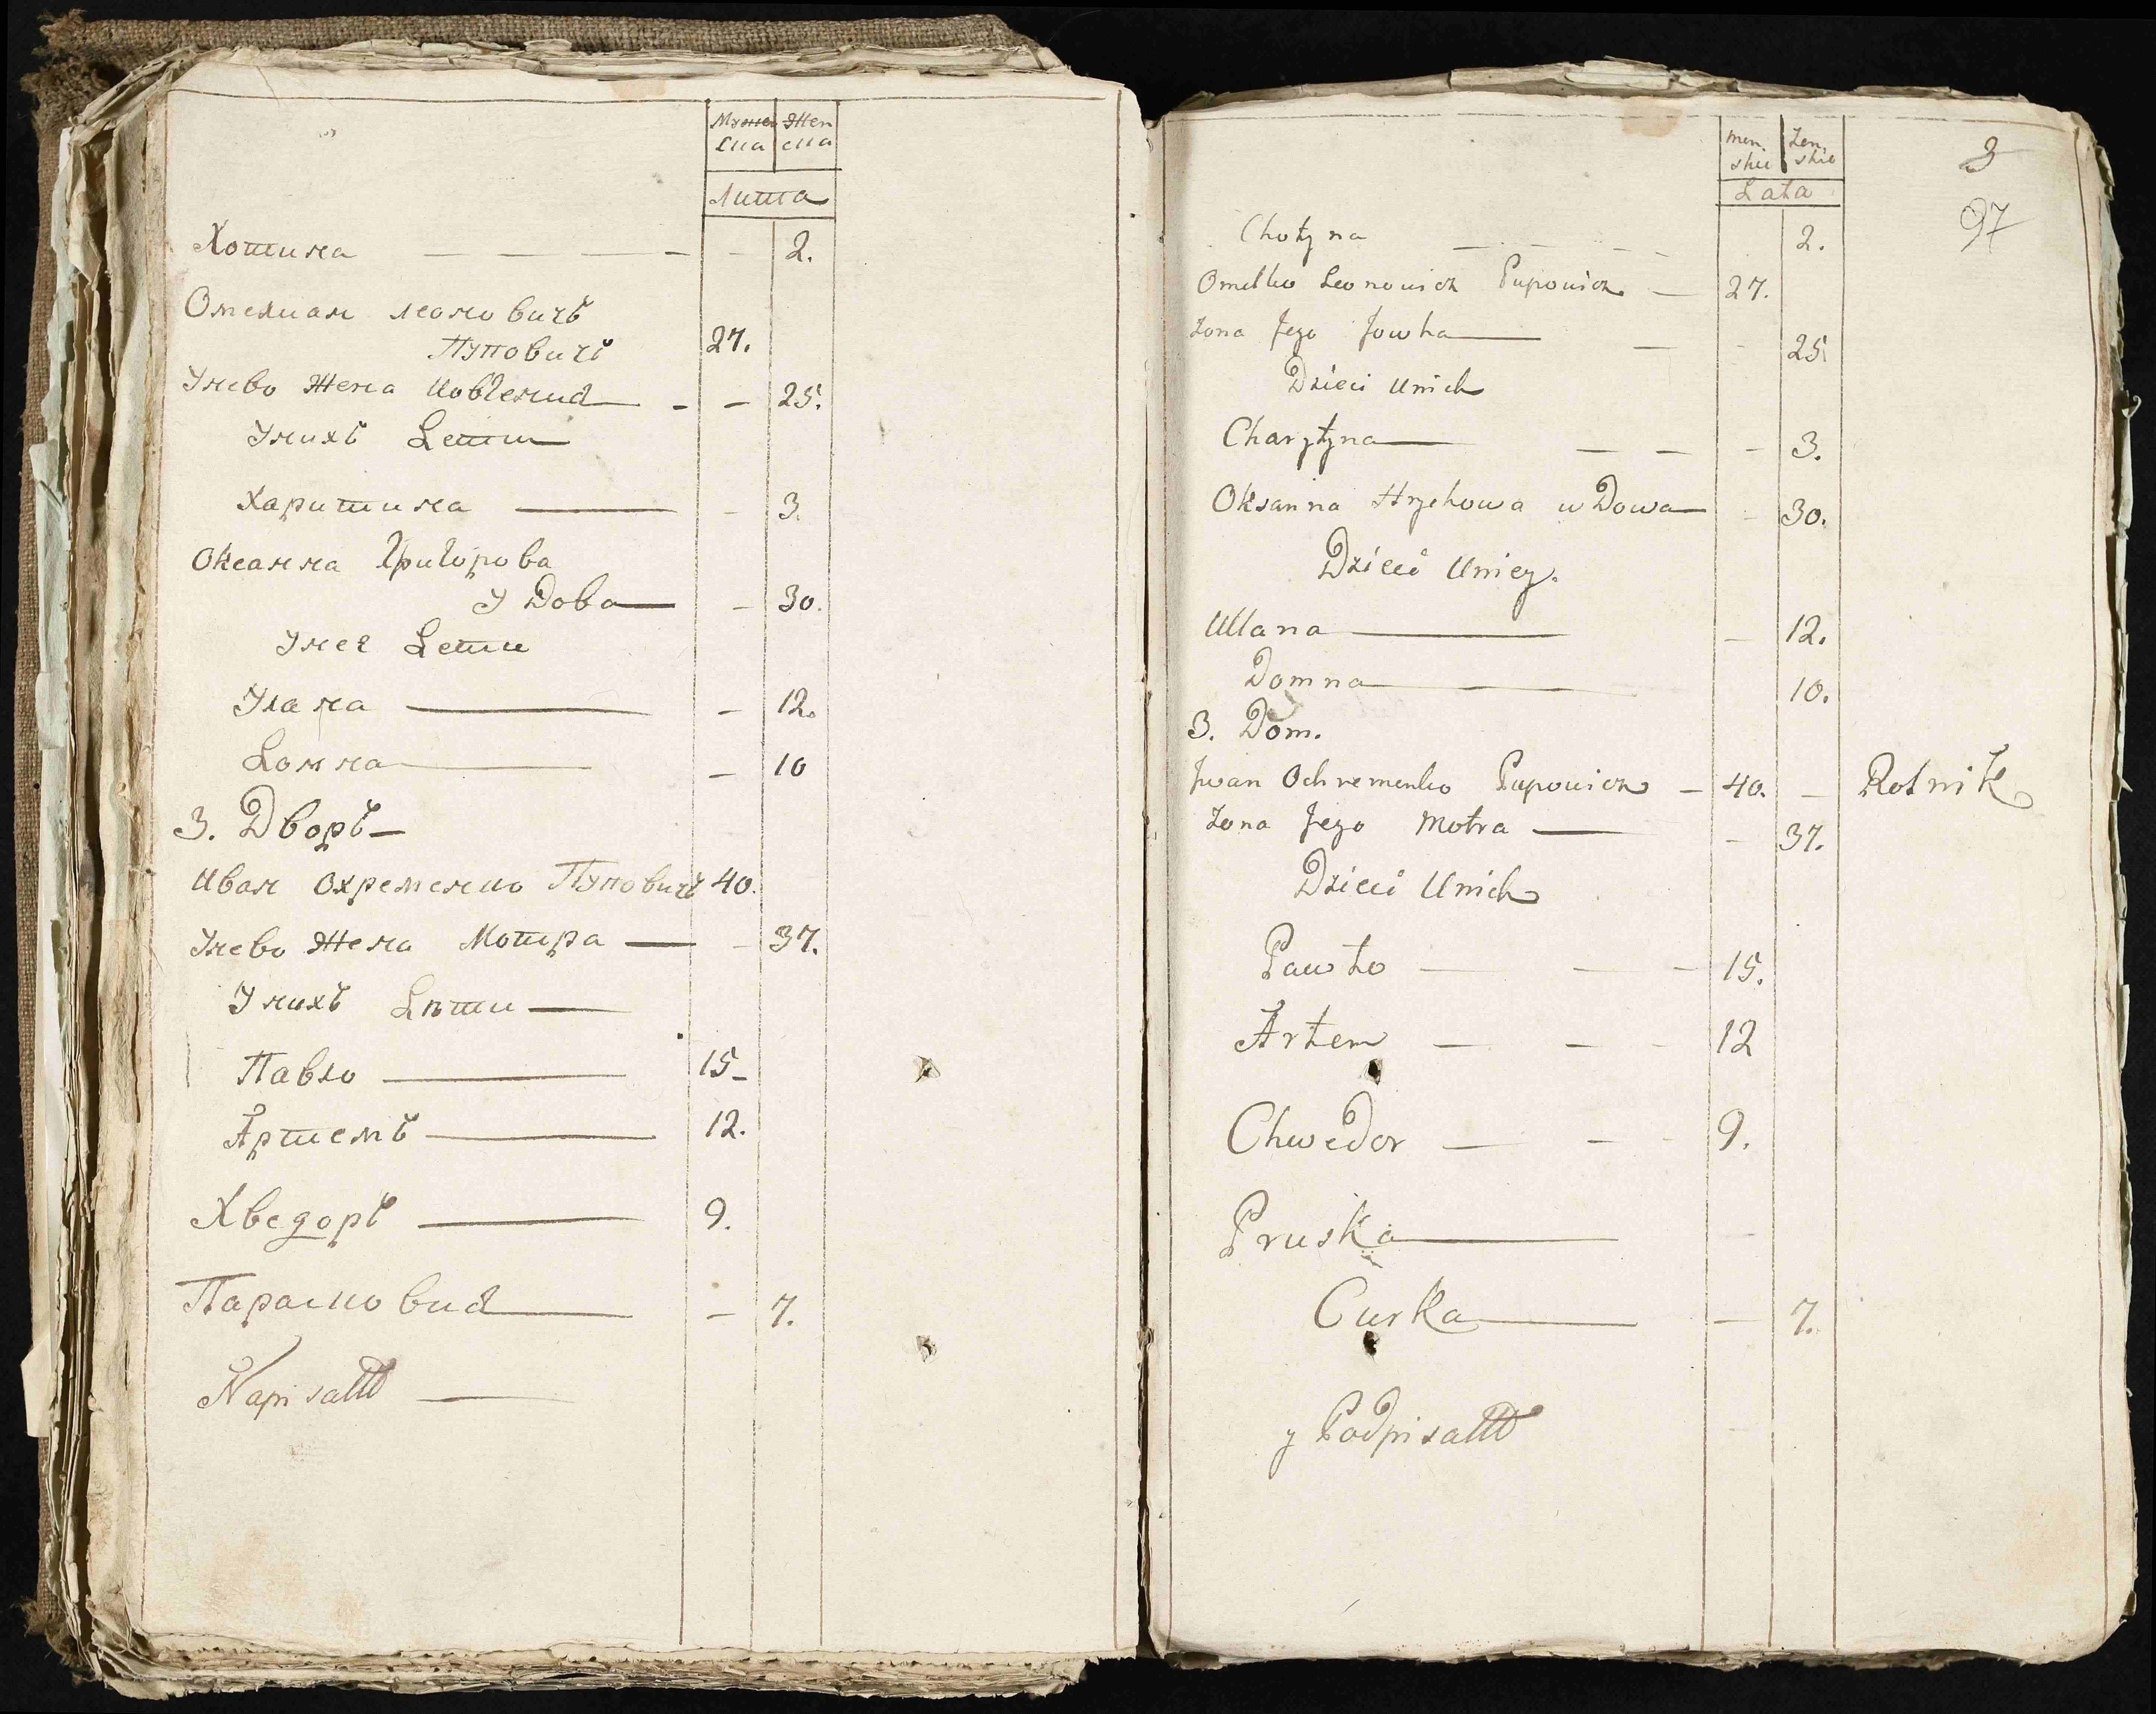 Мужес Жен
ска ска
Лита
Хотина — — — — - - 2.
Омельян Леоновичъ
Пуповичъ 27.
Унево Жена Иовгениа — - - 25.
Унихъ Дети
Харитина — - 3.
Оксанна Григорова
У Дова — - 30.
Унеѣ Дети
Уляна — - 12.
Домна — - 10
3. Дворъ —
Иван Охременко Пуповичъ 40.
Унево Жена Мотра — - 37.
Унихъ Дѣти —
Павло — 15-
Артемъ — 12.
Хведоръ — 9.
Парасковиа — - 7.
Napisałł —
men. Zen.
skie skie
Lata
3
97
Chotyna — - — - 2.
Omelko Leonowicz Pupowicz — 27.
Zona Jego Jowha — — - 25
Dzieci Unich
Charytyna — — — - 3.
Oksanna Hrychowa wDowa — - 30.
Dzieci Uniey.
Ullana — - 12.
Domna — 10.
3. Dom.
Jwan Ochremenko Pupowicz — 40. — Rolnik
Zona Jego Motra — - 37.
Dzieci Unich
Pawło — — - 15.
Artem — — - 12
Chwedor — - - 9.
Pruska —
Curka — — 7.
y Podpisałł